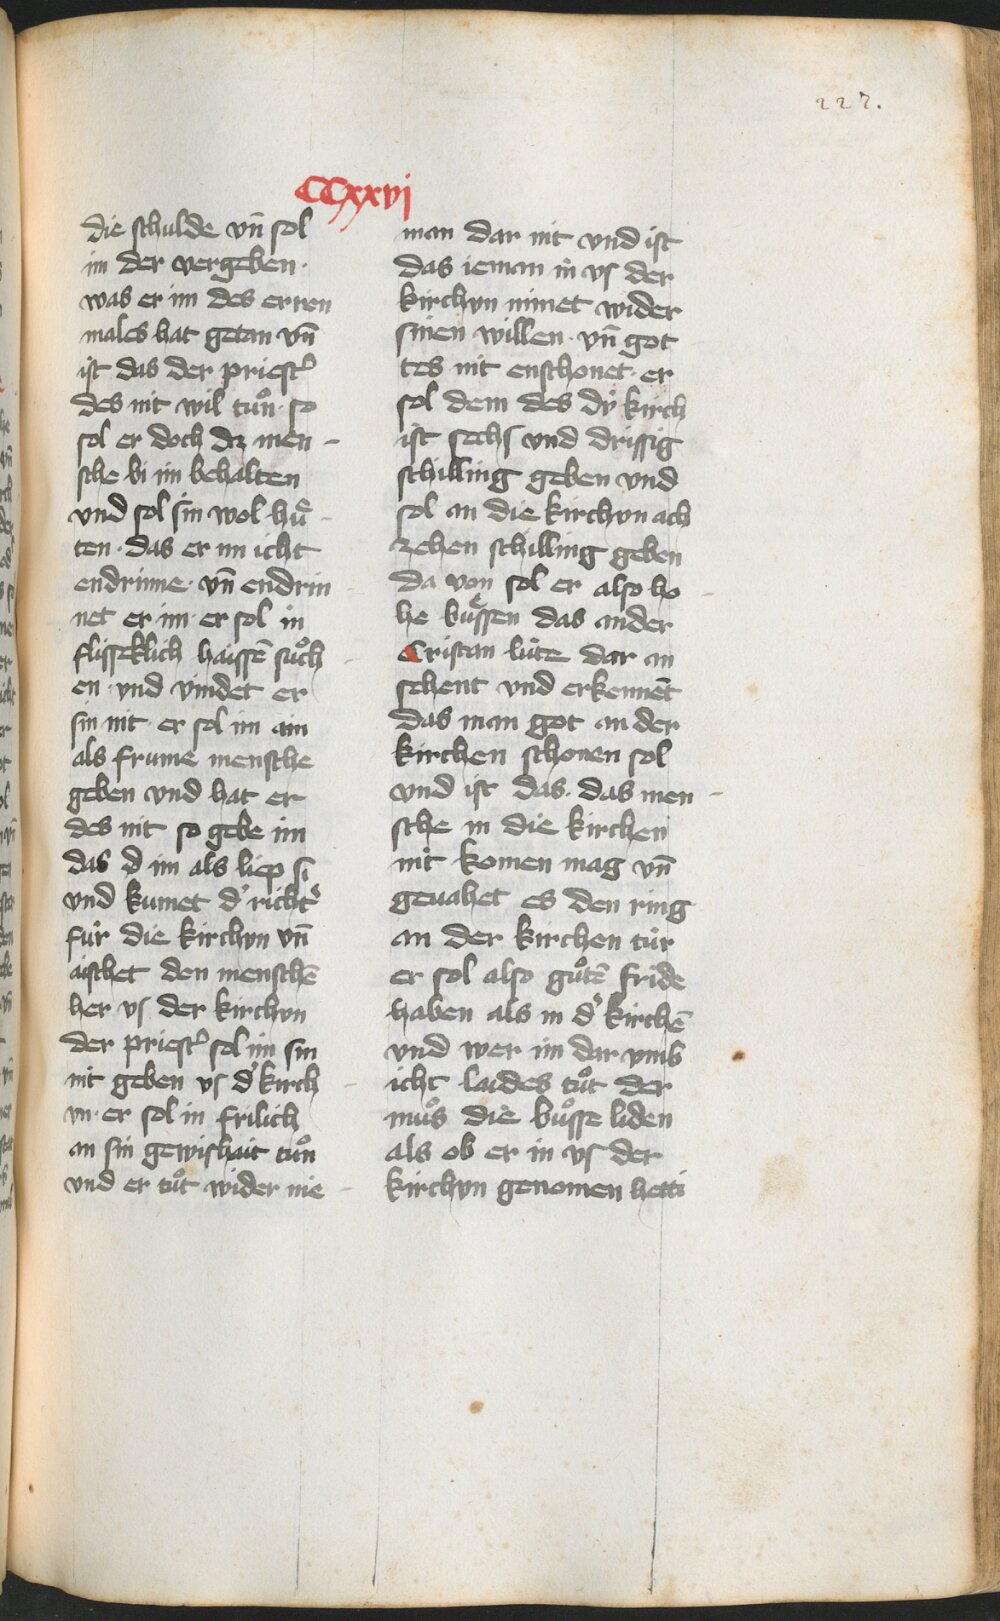 227.
CCxxvj
die schulde vn̄ sol
im der vergeben·
was er im des erren
males hat getan vn̄
ist das der priestˀ
des nit wil tuͦn· so
sol er doch dz men-
sche bi im behalten
vnd sol sin wol huͤ-
ten· das er im icht
endrinne· vn̄ endrin
net er im· er sol in
flisseklich haissē suͦch-
en· vnd vindet er
sin nit· er sol im ain
als frume mensche
geben vnd hat er
des nit so gebe im
das d im als liep si
vnd kumet dˀ richtˀ
fuͤr die kirchyn vn̄
aischet den menschē
her vs der kirchyn
der priestˀ sol im sin
nit geben vs dˀ kirch-
yn· er sol in frilich
an sin gewishait tuͦn
vnd er tuͦt wider nie-
man dar nit vnd ist
das ieman in vs der
kirchyn nimet wider
sinen willen· vn̄ got
tes nit enschonet· er
sol dem des dy kirch
ist sechs vnd drissig
schilling geben vnd
sol an die kirchyn ach
zehen schilling geben
da von sol er also ho-
he buͤssen das ander
Cristan luͤte dar an
sehent vnd erkennēt
das man got an der
kirchen schonen sol
vnd ist das· das men-
sche in die kirchen
nit komen mag vn̄
geuahet es den ring
an der kirchen tuͤr
er sol also guͦtē fride
haben als in dˀ kirchē
vnd wer im dar vmb
icht laides tuͦt der
muͦs die buͦsse liden
als ob er in vs der
kirchyn genomen hetti